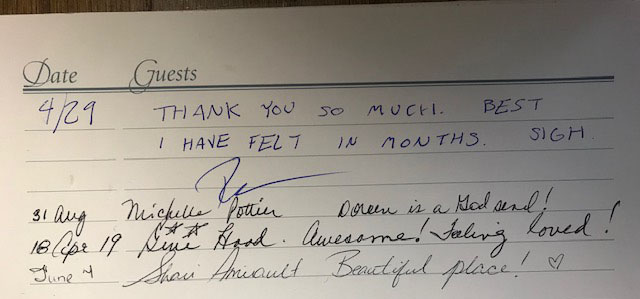 Date Guests
4/29 THANK YOU SO MUCH. BEST
I HAVE FELT IN MONTHS. SIGH
31 Aug Michelle Pottier Doreen is a God send!
18 Apr 19 Hood. Awesome! Feeling loved!
June 7 Shari Amirault Beautiful place! ♡